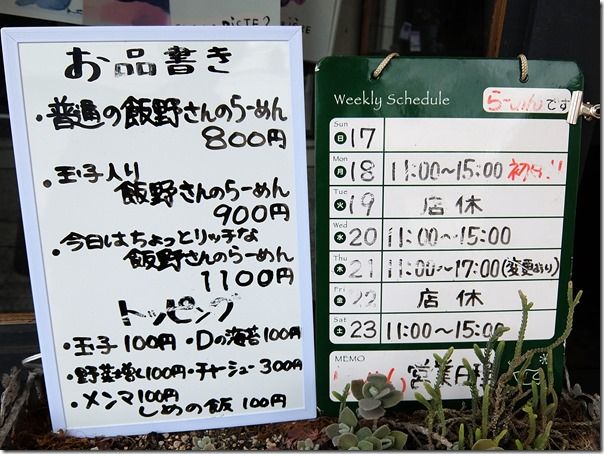 お品書き
・普通の飯野さんのらーめん
800円
・玉子入り
飯野さんのらーめん
900円
・今日はちょっとリッチな
飯野さんのらーめん
1100円
トッピング
・玉子100円・Dの海苔100円
・野菜増し100円・チャーシュー300円
・メンマ100円
しめの飯100円
Weekly Schedule
らーめんです
Sun 日 17
Mon 月 18 11:00〜15:00
Tue 火 19 店休
Wed 水 20 11:00〜15:00
Thu 木 21 11:00〜17:00(変更あり)
Fri 金 22 店休
Sat 土 23 11:00〜15:00
MEMO
営業日程